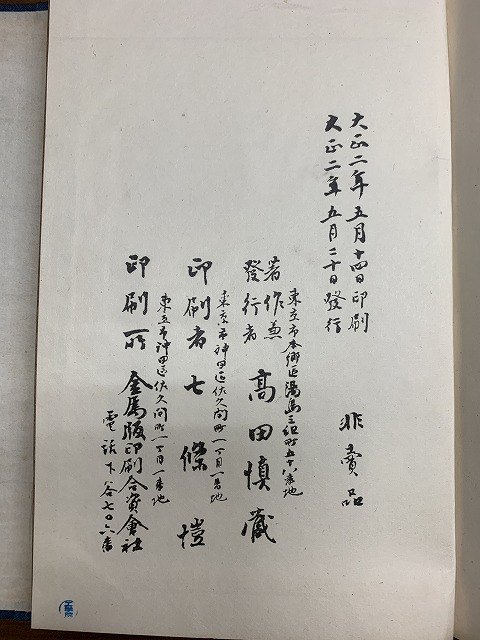 大正二年五月十四日印刷
大正二年五月二十日發行
非賣品
東京市本郷區湯島三組町五十八番地
著作兼
發行者 高田慎蔵
東京市神田區佐久間町一丁目一番地
印刷者 七條愷
東京市神田區佐久間町一丁目一番地
印刷所 金属版印刷合資會社
電話下谷七〇六番